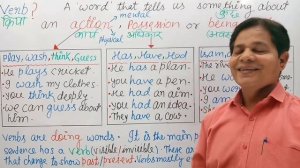 Verb? A word that tells us something about
mental
क्रिया an action, Possession or being
physical अधिकार
Play, wash, think, Guess
He plays cricket.
I wash my clothes
You think deeply.
We can guess about
him.
Has, Have, Had
He has a plan.
You have a pen.
He had an aim.
You had an idea.
They have a cow.
Is, am,
He
I am
You
We
Verbs are doing words. It is the main p
sentence has a verb (visible/invisible). These ar
that change to show past/present. Verbs mostly e